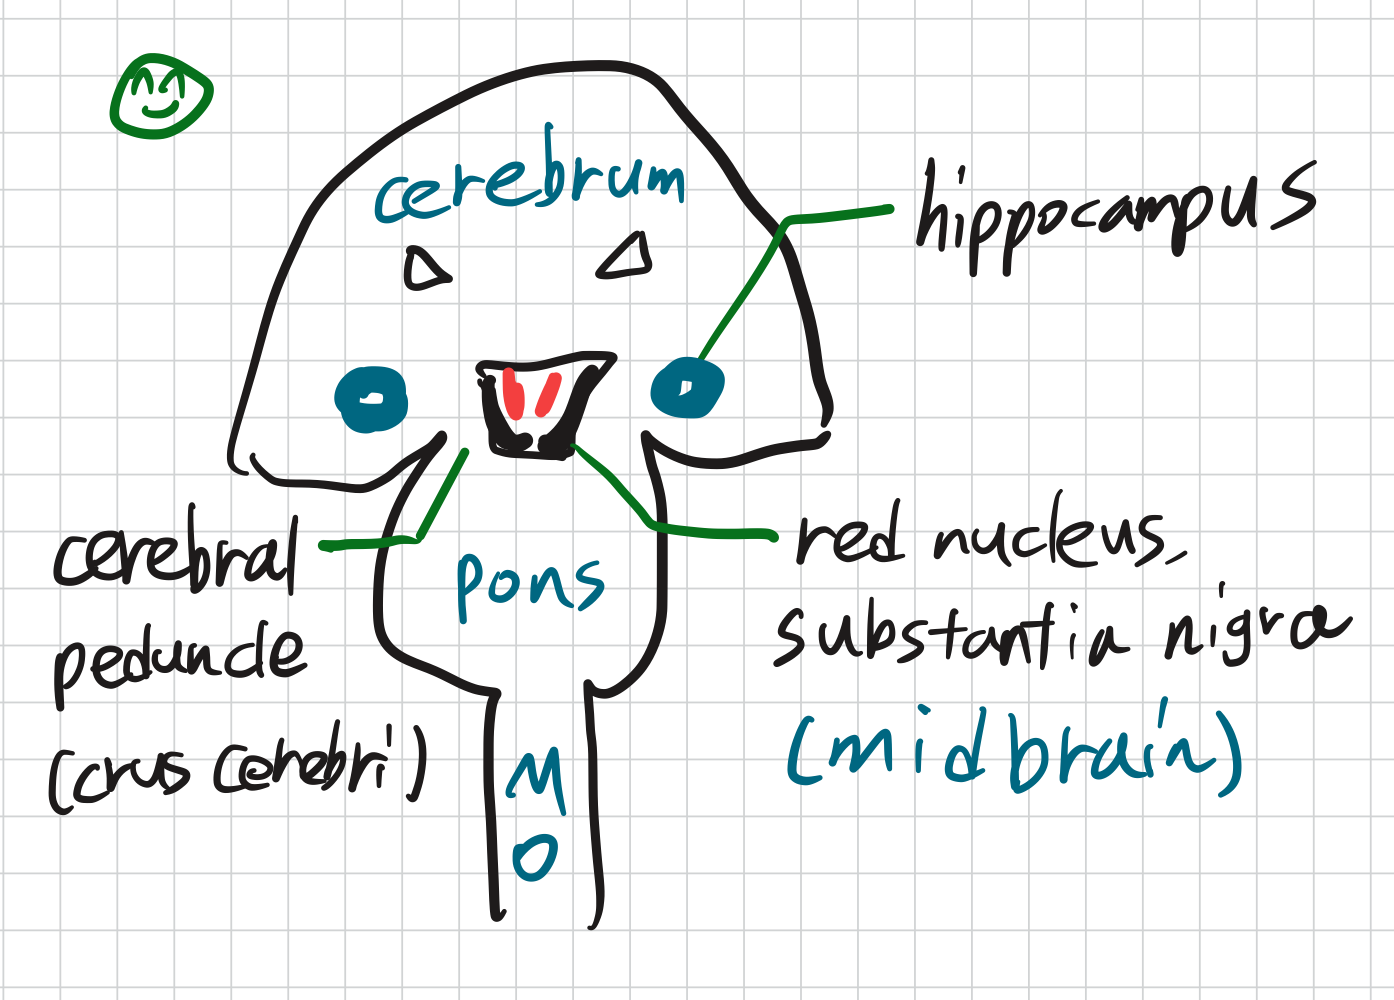 cerebrum
hippocampus
cerebral
peduncle
(crus cerebri)
pons
red nucleus,
substantia nigra
(midbrain)
M
O